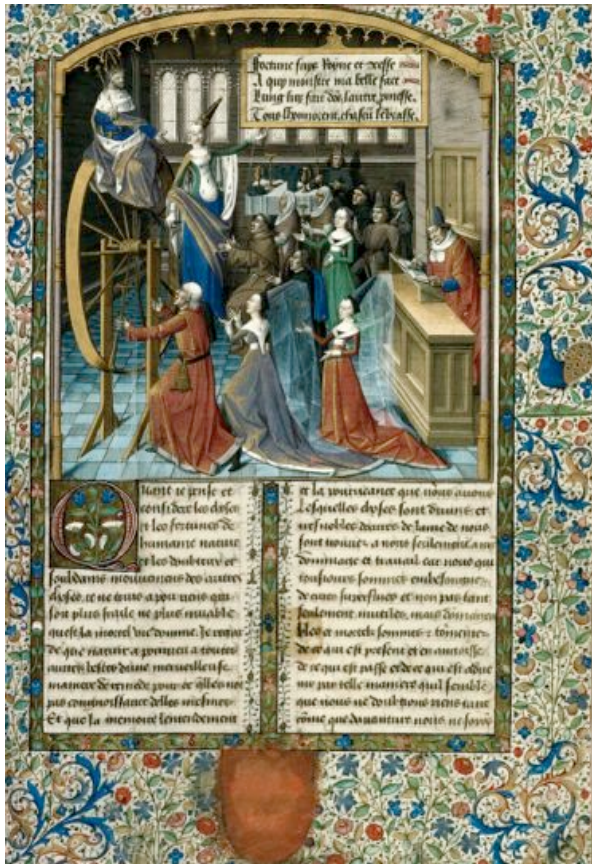 Fortune suys Royne et Deesse
A quy monstre ma belle face
Lung luy fait don, lautre promesse,
Tous lhonnorent, chascun lebrasse,
Quant je pense et
considere les choses
et les fortunes de
humaine nature
et les doubteux et
souldains mouvemens des autres
choses, je ne truis a pou riens qui
soit plus fragile ne plus muable
quest la mortel vie domme. Je regar
de que nature a pourveu a toutes
autres bestes dune merveilleuse
maniere de remede pour ce quelles not
pas congnoissance delles mesmes
Et que la memoire lentendement
et la pourveance que nous avons
Lesquelles choses sont divins et
tresnobles de lame de nous
sont tourne a nous seulement a
dommaige et travail car nous qui
tousiours sommes embesoigniez
de cures superflues et non pas tant
seulement inutiles, mais
bles et mortels sommes tormentez
de ce qui est present et en angoisse
de ce qui est passe et de ce qui est adve
nir par telle maniere quil semble
que nous ne doubtions riens tant
come que daventure nous ne soyos